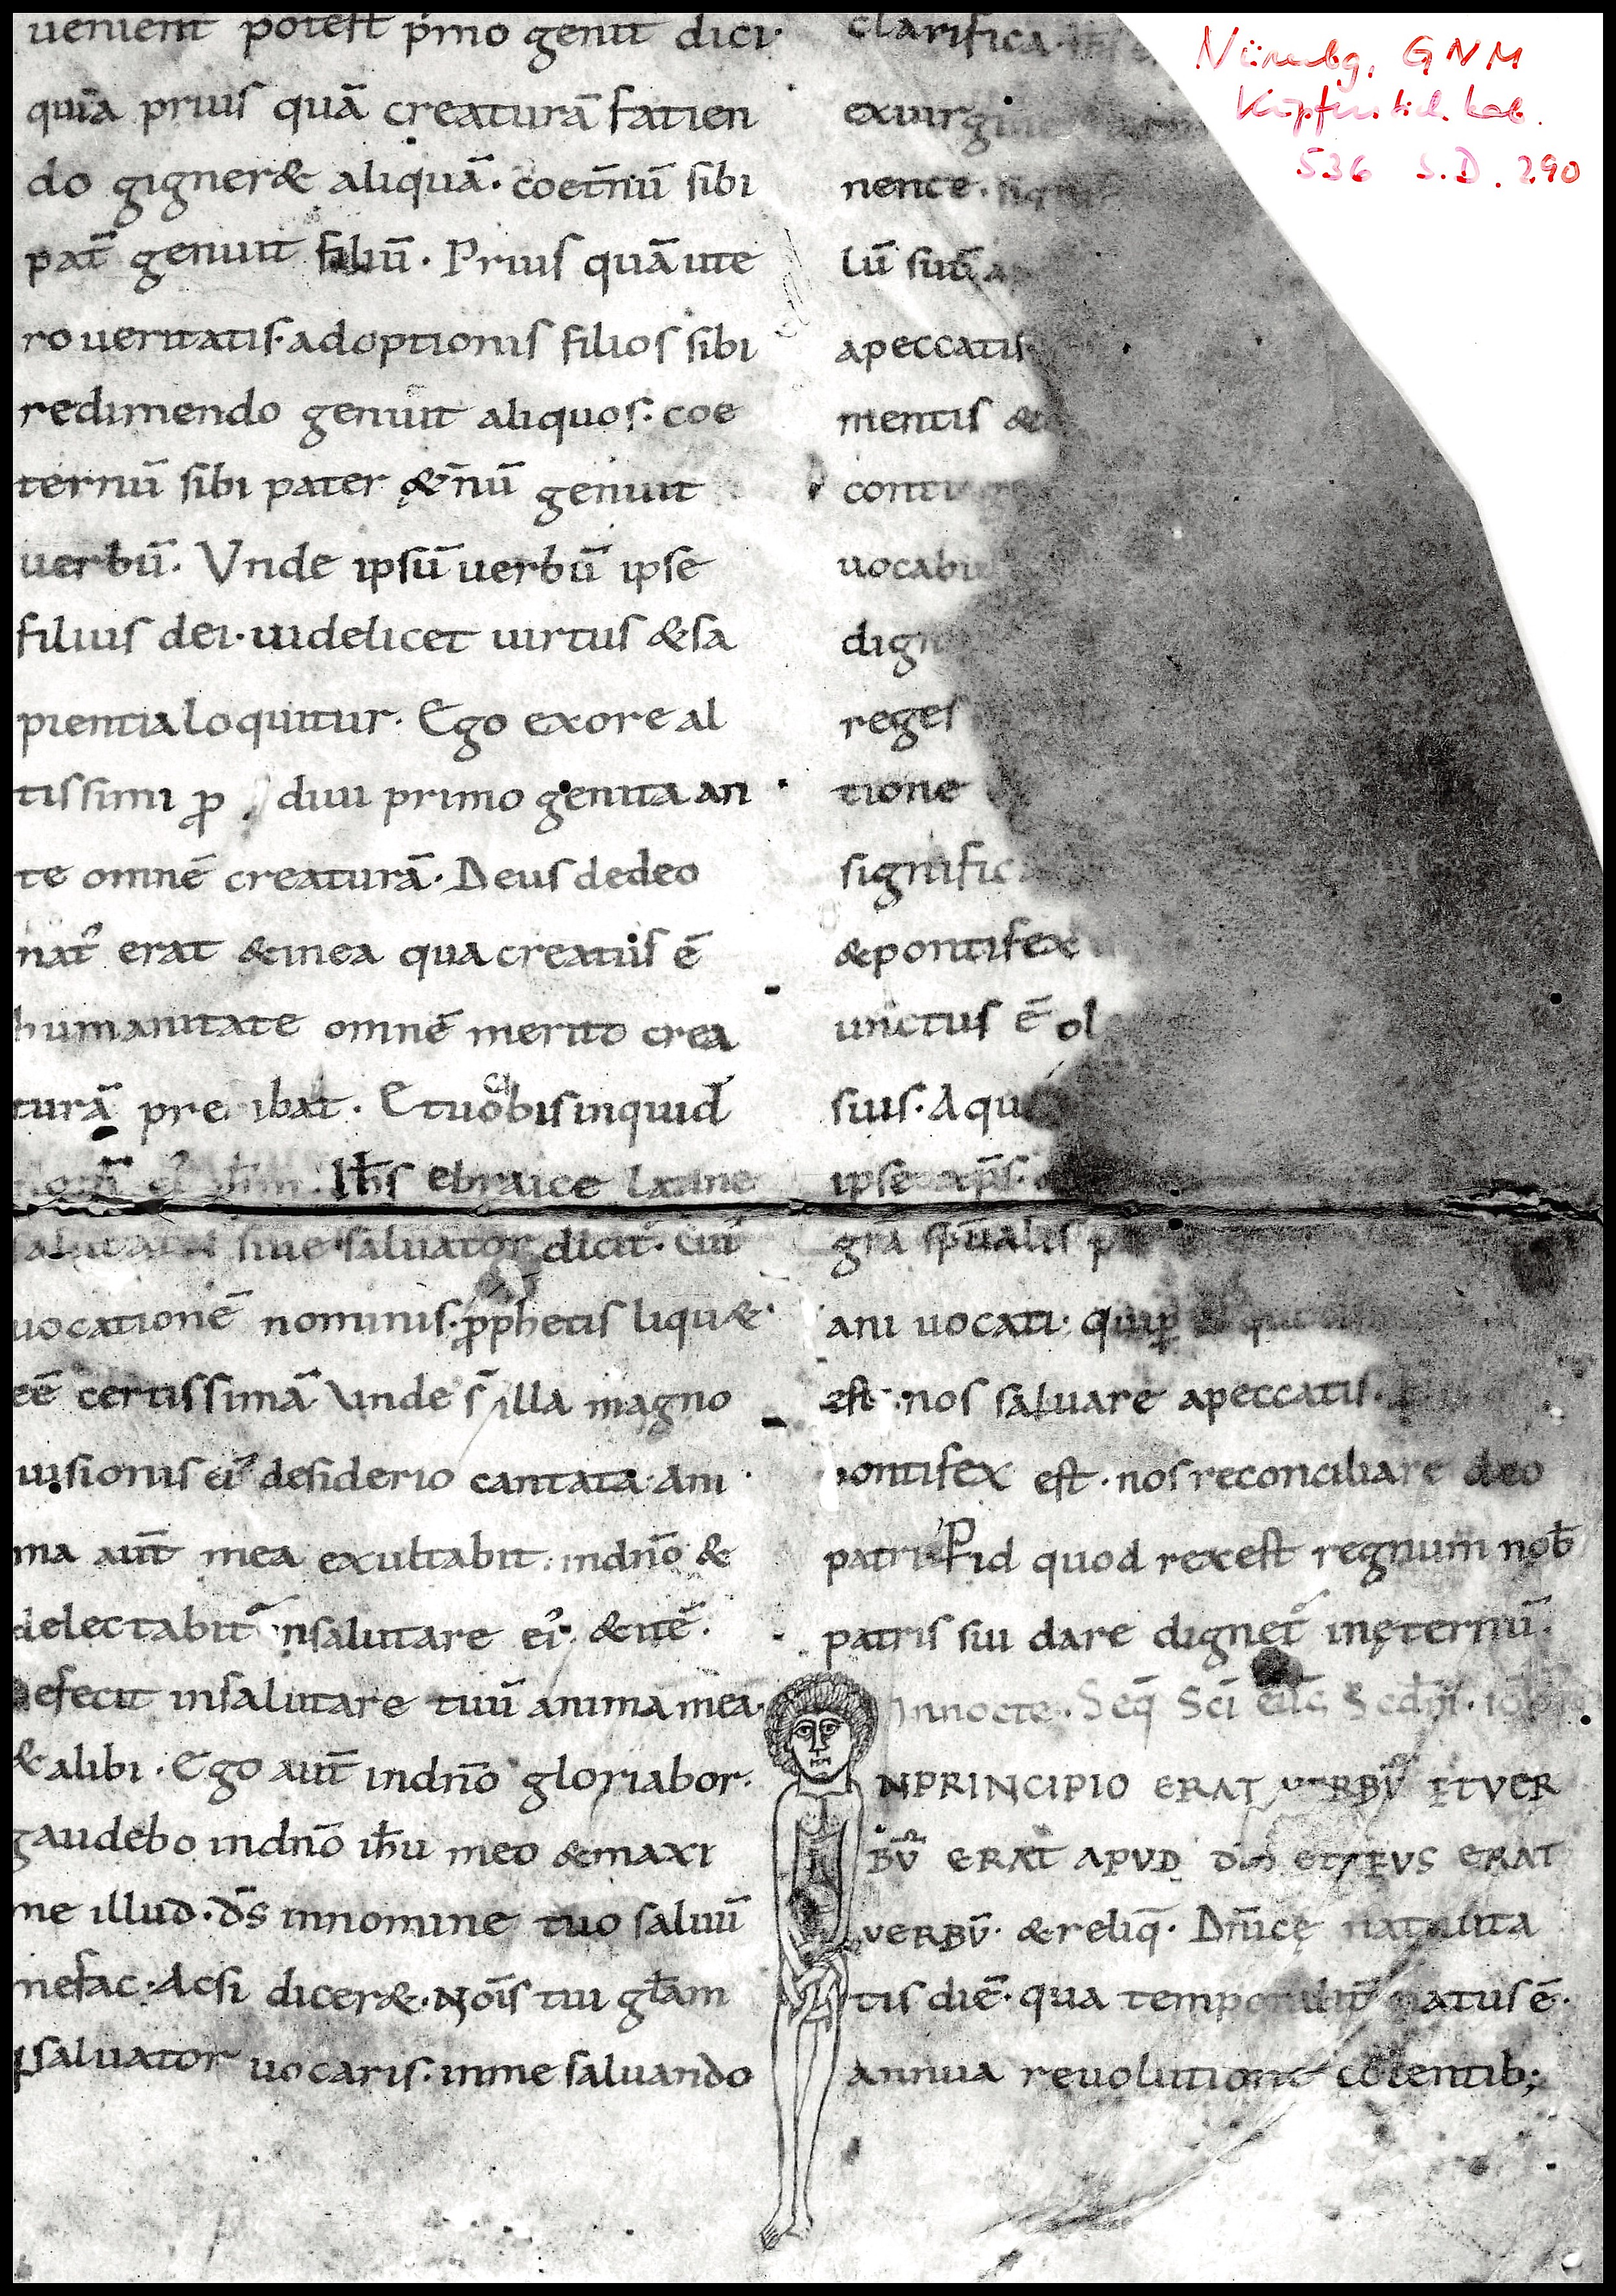 uenient potest p̄mo genit dici·
quia prius quā creaturā fatien
do gigner& aliquā· coet̄nū sibi
pat̄ genuit filiū· Prius quā ute
ro ueritatis· adoptionis filios sibi
redimendo genuit aliquos: coe
ternū sibi pater &̄nū genuit
uerbū. Vnde ipsū uerbū ipse
filius dei· uidelicet uirtus &sa
pientia loquitur· Ego exore al
tissimi ꝓ diui primo genita an
te omnē creaturā· Deus dedeo
nat᷒ erat &inea qua creatus ē
humanitate omnē merito crea
turā pre ibat· Et uobis inquid
Ih̄s ebraice latine
siue saluator dicit᷒· Cui᷒
uocationē nominis· ꝓphetis liqu&·
eē certissimā Unde s̄ illa magno
uisionis ei᷒ desiderio cantata· Ani
ma aūt mea exultabit· indn̄o &
delectabit᷒ insalutare ei᷒· &itē·
Defecit insalutare tuū anima mea·
&alibi· Ego aūt indn̄o gloriabor·
gaudebo indn̄o ih̄u meo &maxi
me illud· d̄s innomine tuo saluū
mefac· Acsi dicer&· Noīs tui gl̄am
q saluator uocaris· inme saluando
clarifica· ih̄s
exuirgine
nence·
lū suū a
apeccatis
mentis &
conti
uocabu
dign
reges
tione
signific
&pontifex
unctus ē ol
sius· Aqu
ipse xp̄s·
gr̄a sp̄ualis p
ani uocati· quip̄
est· nos saluare apeccatis·
pontifex est· nos reconciliare deo
patri Pid quod rex est regnum nob̄
patris sui dare dignet᷒ inęternū·
Innocte· Seq̄ Sc̄i eūg Scd̄m· ioh
NPRINCIPIO ERAT VERBV̄ ETVER
BV̄ ERAT APVD DM̄ ETDEVS ERAT
VERBV̄· &reliq̄· Dn̄icę natiuita
tis diē· qua temporalit̄ natus ē·
annua reuolutione colentib;
Nürnbg, GNM
Kupferstich. kab.
536 S.D. 290